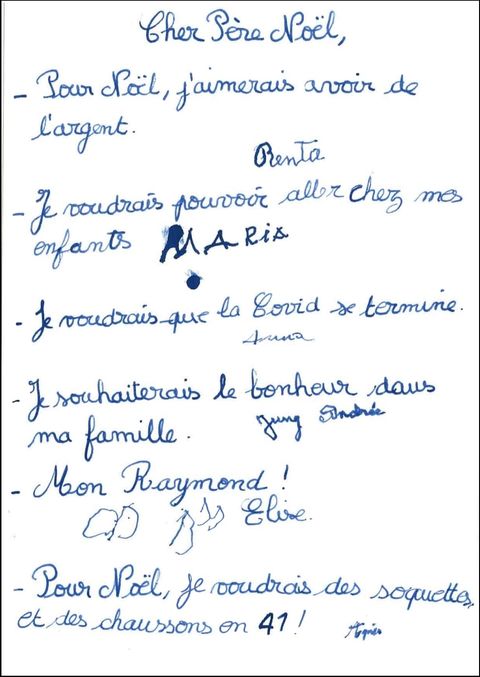 Cher Père Noël,
- Pour Noël, j'aimerais avoir de
l'argent.
Renta
- Je voudrais pouvoir aller chez mes
enfants MARIA
- Je voudrais que la Covid se termine.
Anna
- Je souhaiterais le bonheur dans
ma famille. Jung Andrée
- Mon Raymond !
Elise.
- Pour Noël, je voudrais des soquettes
et des chaussons en 41 ! Agnès